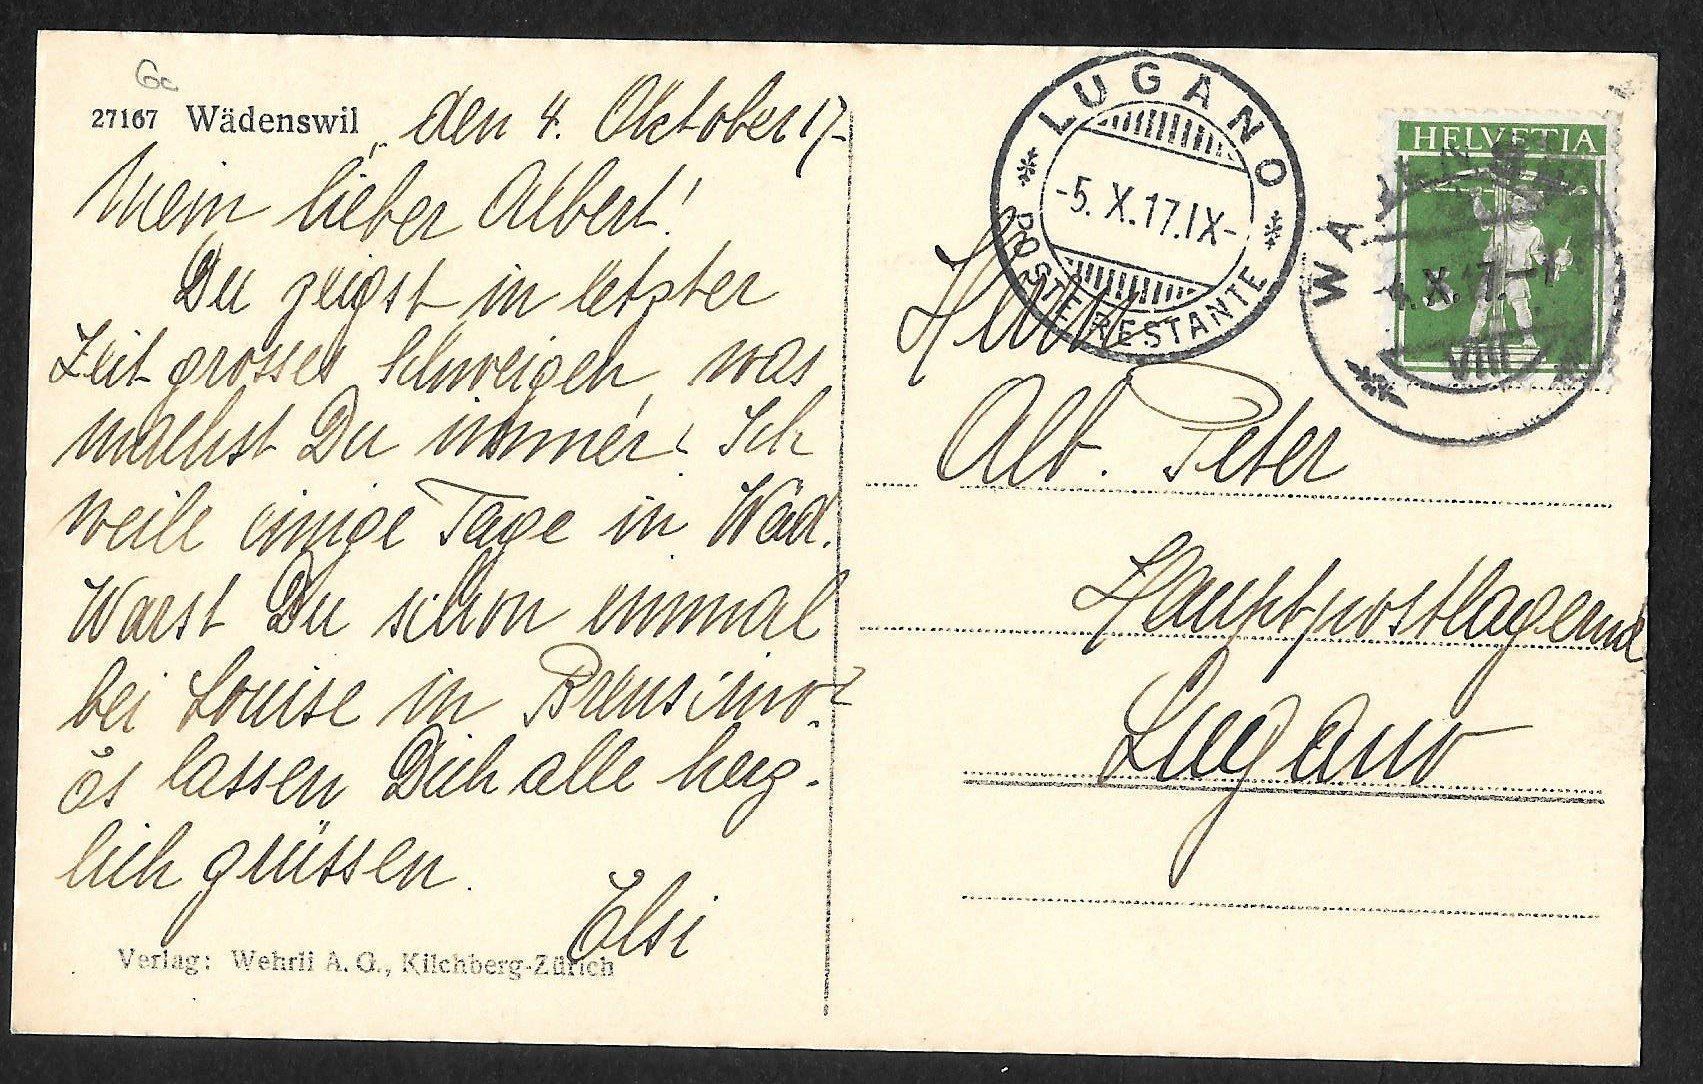 Gc
27167 Wädenswil, den 4. Oktober 17.
Mein lieber Albert!
Du zeigst in letzter
Zeit grosses Schweigen, was
machst Du immer? Ich
weile einige Tage in Wäd.
Warst Du schon einmal
bei Louise in Brusino?
Es lassen Dich alle herz-
lich grüssen.
Elsi
Verlag: Wehrli A. G., Kilchberg-Zürich
LUGANO
-5. X. 17. IX-
POSTE RESTANTE
HELVETIA
X. 17.
VIII
Herrn
Alb. Peter
Hauptpostlagernd
Lugano